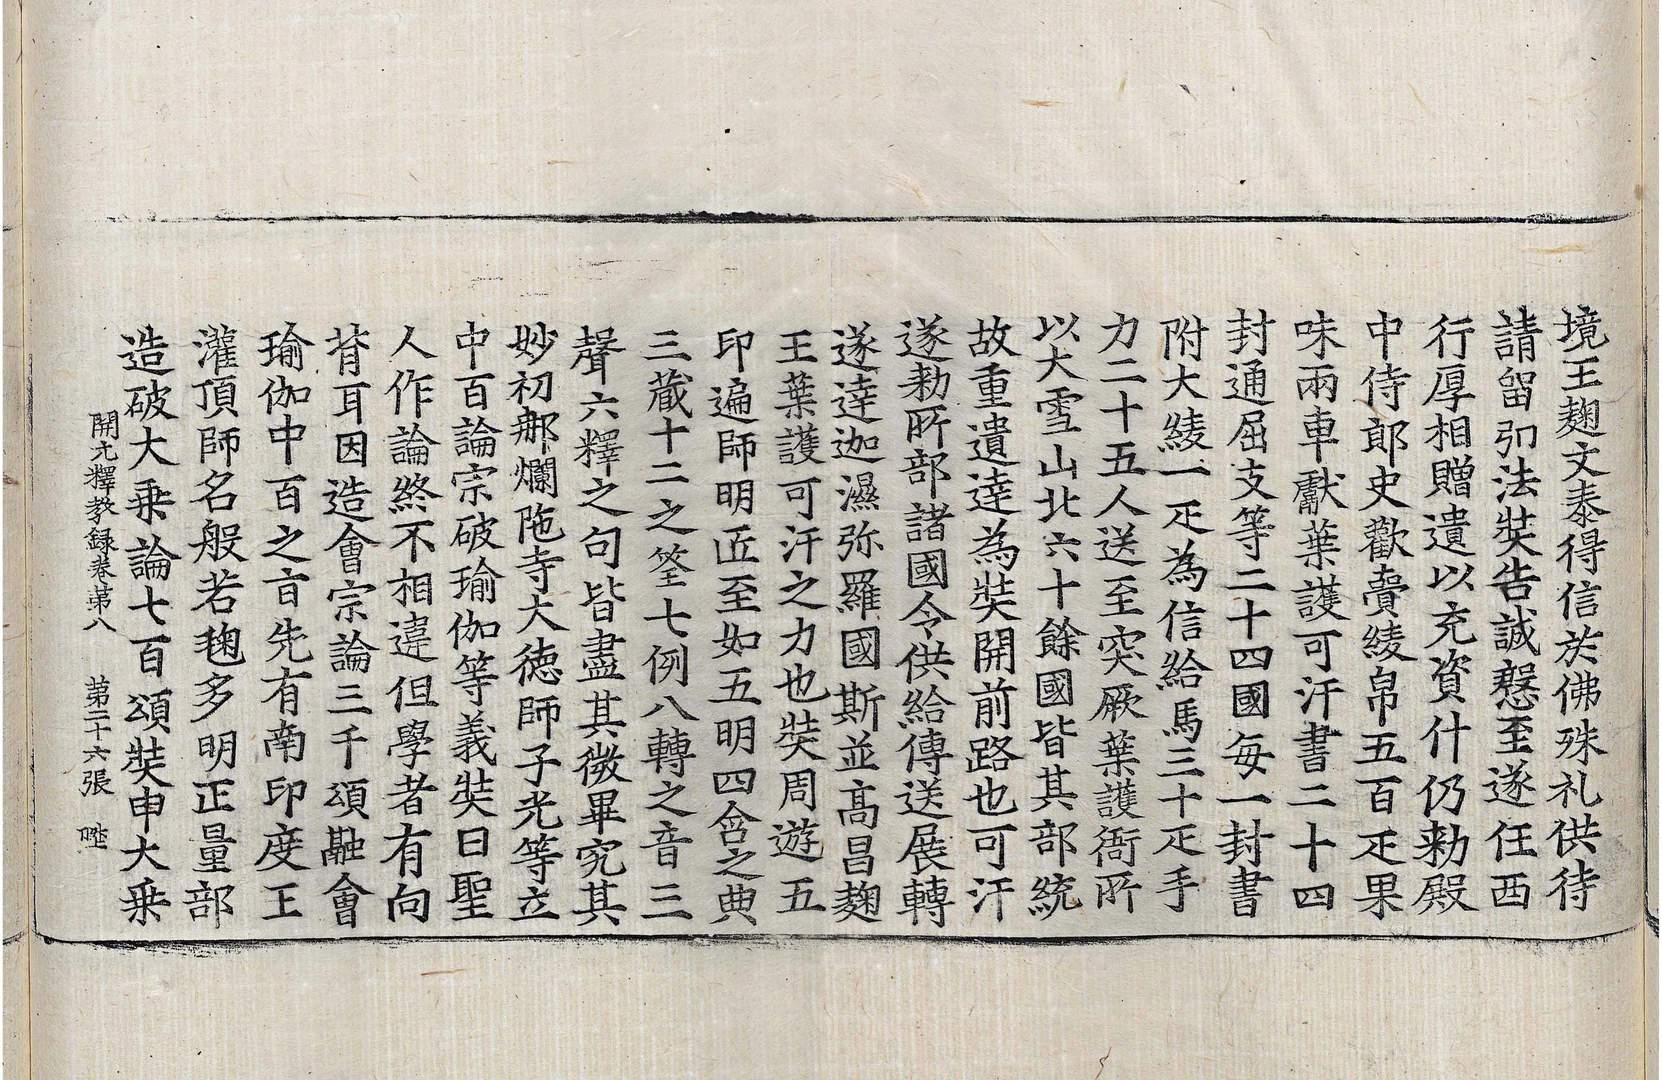 境王麹文泰得信於佛殊礼供待
請留弘法奘告誠懇至遂任西
行厚相贈遺以充資什仍勑殿
中侍郎史歡賷綾帛五百疋果
味兩車獻葉護可汗書二十四
封通屈支等二十四國每一封書
附大綾一疋為信給馬三十疋手
力二十五人送至突厥葉護衙所
以大雪山北六十餘國皆其部統
故重遺達為奘開前路也可汗
遂勑所部諸國令供給傳送展轉
遂達迦濕弥羅國斯並高昌麹
王葉護可汗之力也奘周遊五
印遍師明匠至如五明四含之典
三蔵十二之筌七例八轉之音三
聲六釋之句皆盡其微畢究其
妙初那爛陁寺大徳師子光等立
中百論宗破瑜伽等義奘曰聖
人作論終不相違但學者有向
背耳因造會宗論三千頌融會
瑜伽中百之旨先有南印度王
灌頂師名般若毱多明正量部
造破大乗論七百頌奘申大乗
開元釋教録卷苐八 苐二十六張